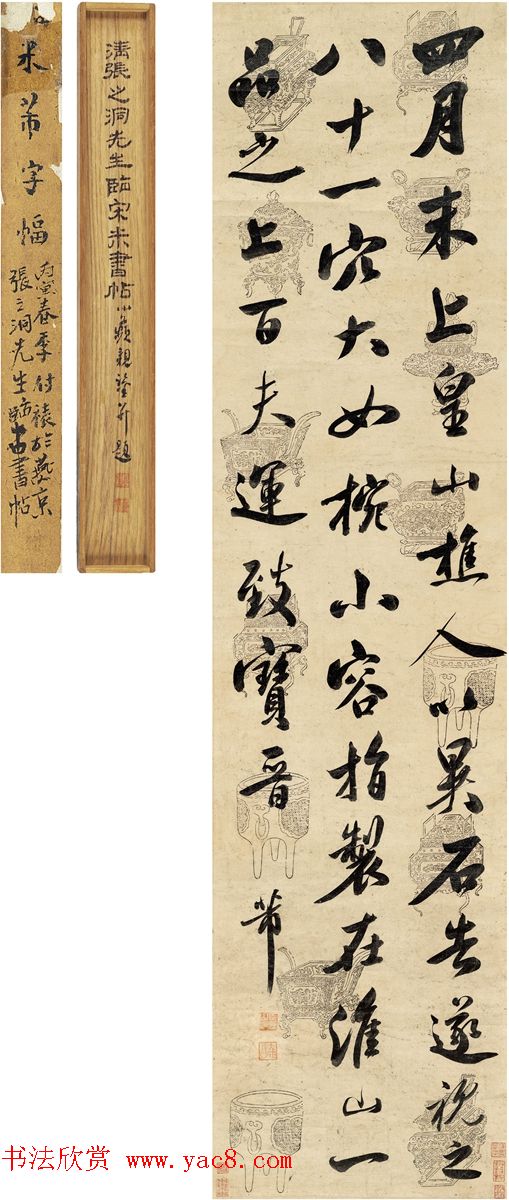 四月末上皇山樵人以異石告遂視之
八十一穴大如椀小容指製在淮山一
品之上百夫運致寶晉
芾
清張之洞先生臨宋米書帖
小蘋親署并題
米芾字幅
丙寅春季付裱於燕京
張之洞先生臨米書帖
书法欣赏 www.yac8.com